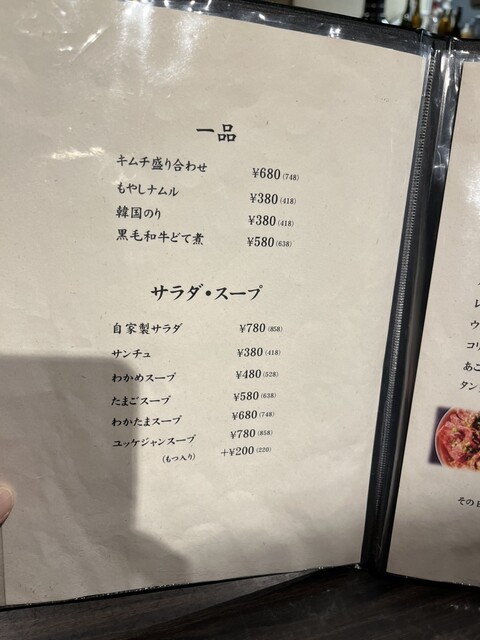 一品
キムチ盛り合わせ ¥680(748)
もやしナムル ¥380(418)
韓国のり ¥380(418)
黒毛和牛どて煮 ¥580(638)
サラダ・スープ
自家製サラダ ¥780(858)
サンチュ ¥380(418)
わかめスープ ¥480(528)
たまごスープ ¥580(638)
わかたまスープ ¥680(748)
ユッケジャンスープ ¥780(858)
(もつ入り) +¥200(220)
レ
ウ
コリ
あこ
タン
その日